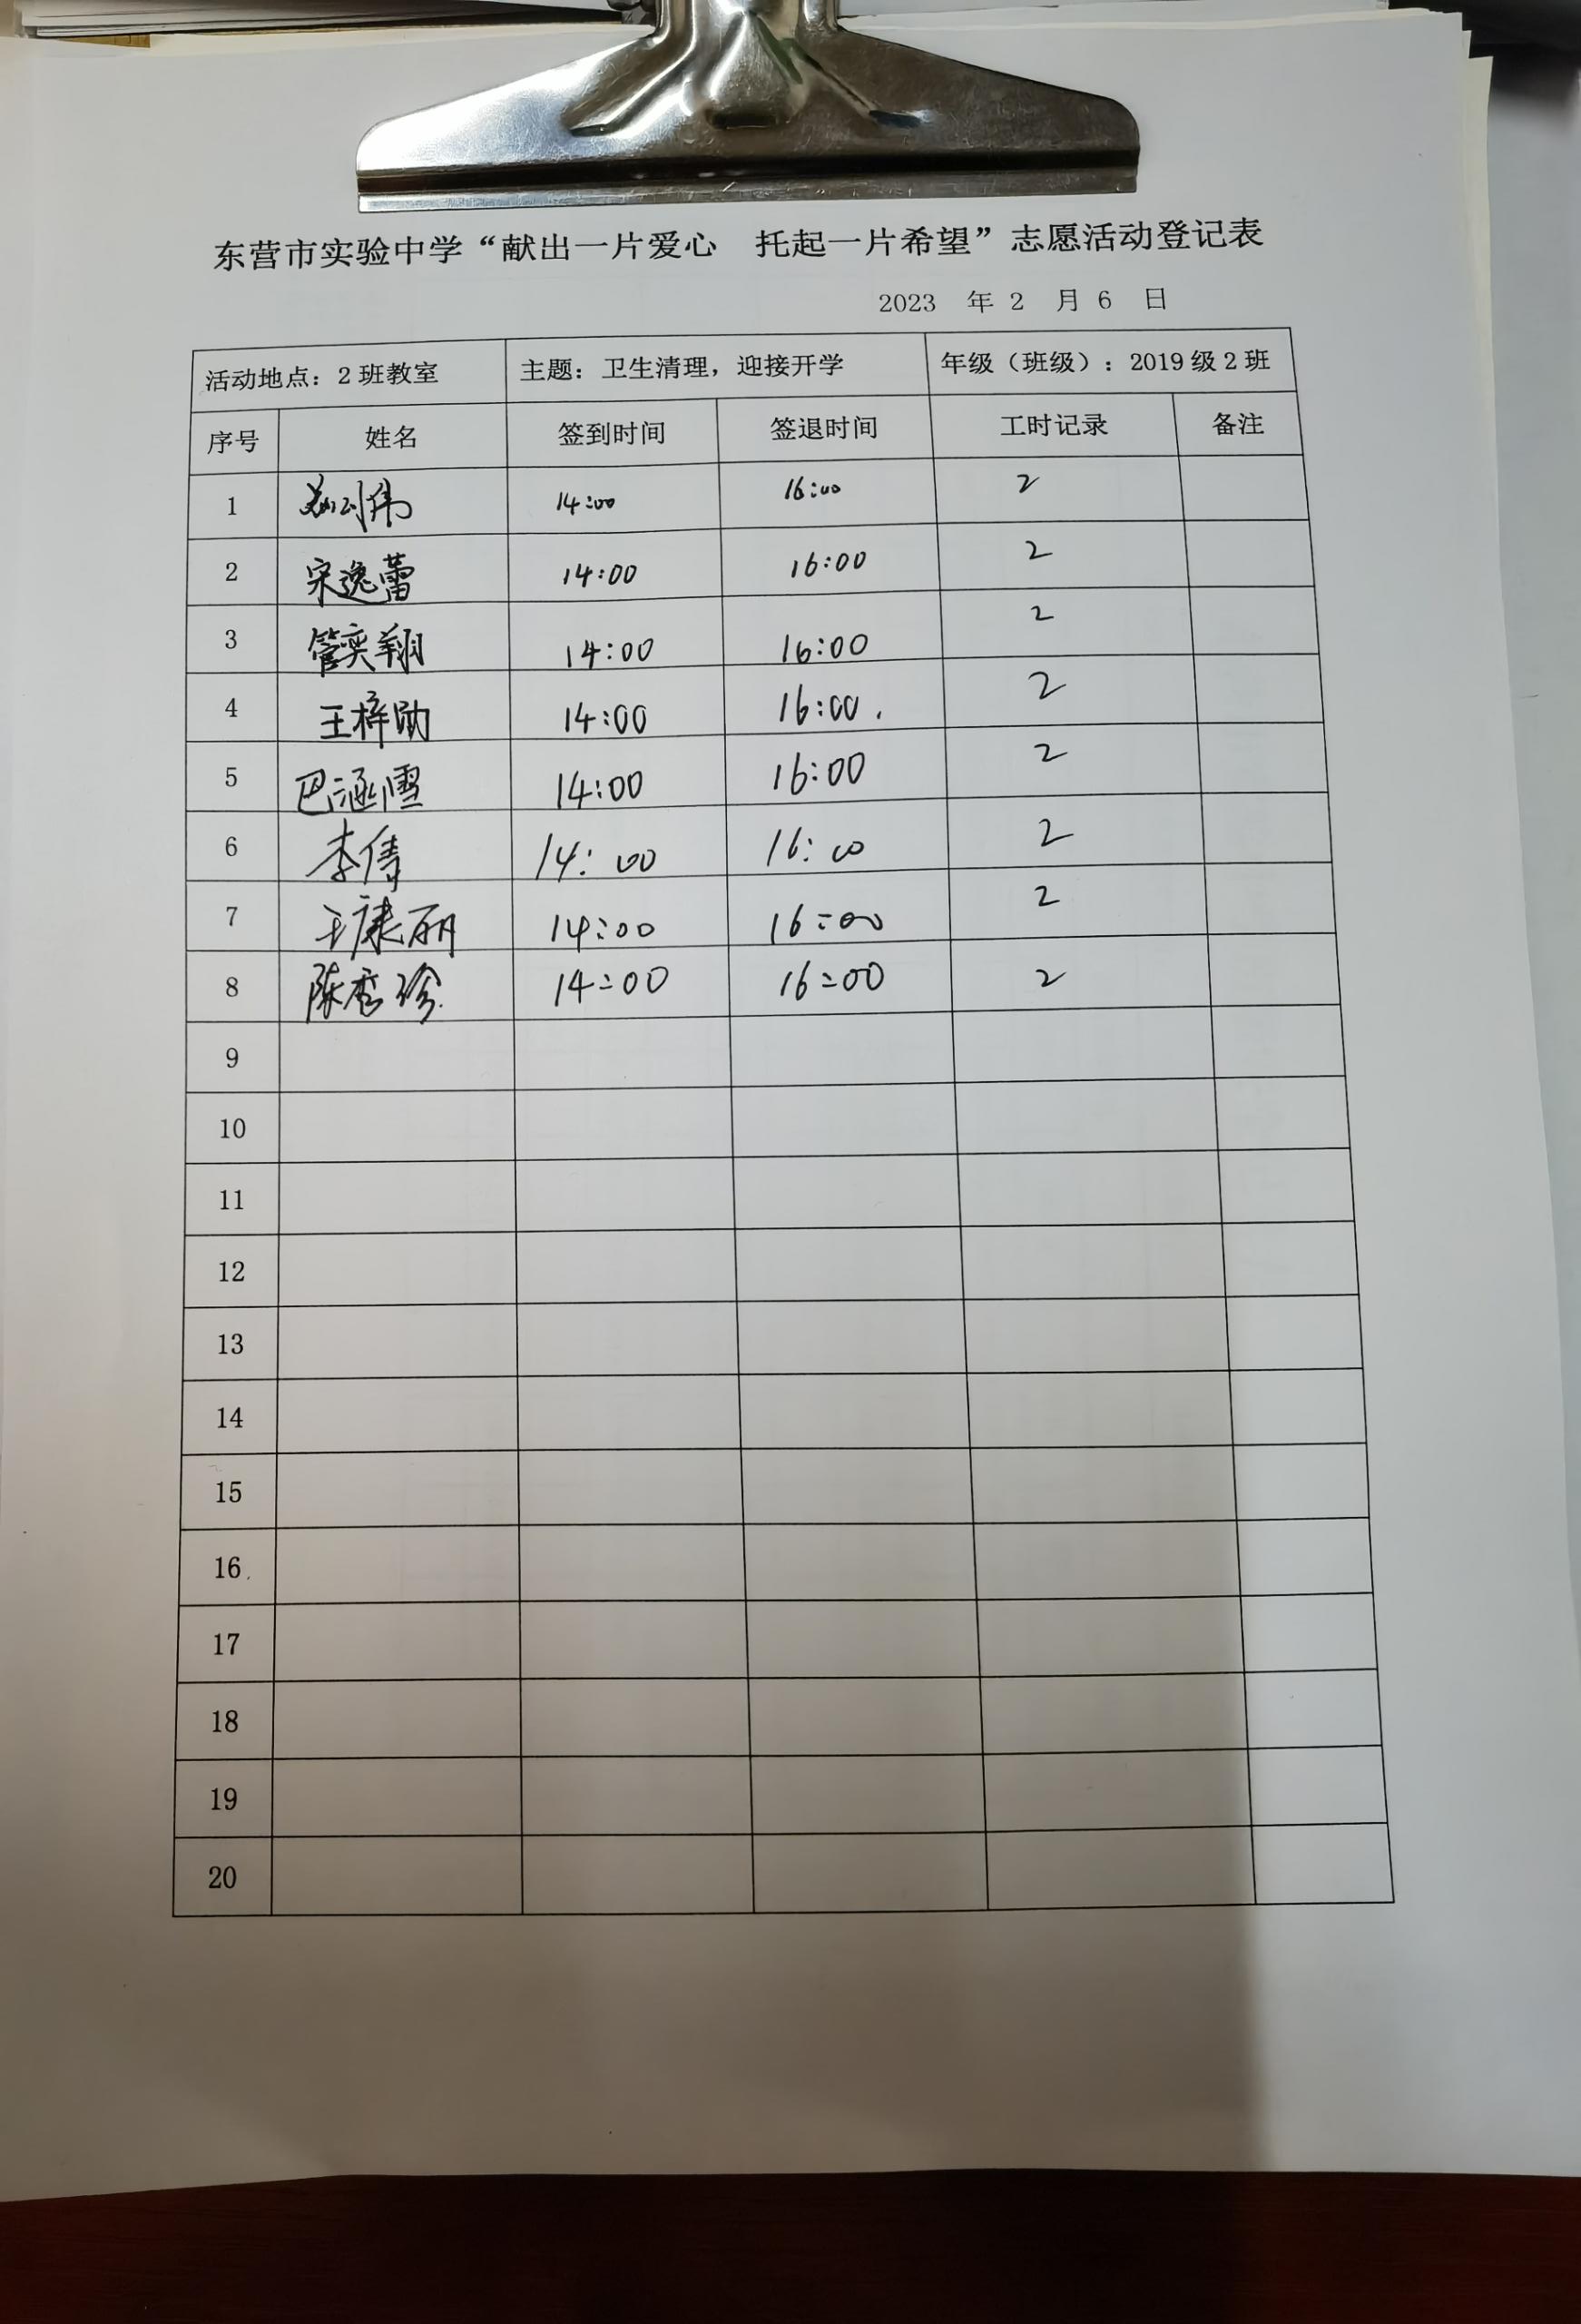 东营市实验中学“献出一片爱心 托起一片希望”志愿活动登记表
2023 年 2 月 6 日
活动地点：2班教室 主题：卫生清理，迎接开学 年级（班级）：2019级2班
序号 姓名 签到时间 签退时间 工时记录 备注
1 14:00 16:00 2
2 宋逸蕾 14:00 16:00 2
3 管奕翔 14:00 16:00 2
4 王梓勋 14:00 16:00. 2
5 巴涵雪 14:00 16:00 2
6 李倩 14:00 16:00 2
7 王康丽 14:00 16:00 2
8 陈秀珍 14:00 16:00 2
9
10
11
12
13
14
15
16
17
18
19
20